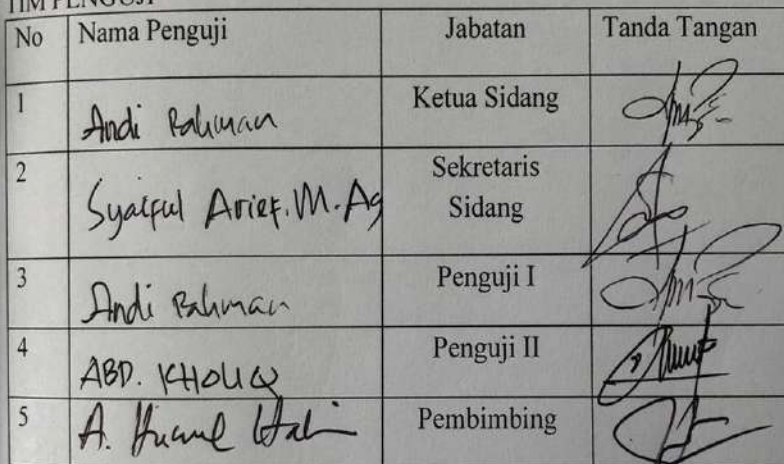 TIM PENGUJI
No Nama Penguji Jabatan Tanda Tangan
1 Andi Rahman Ketua Sidang
2 Syaiful Arief. M.Ag Sekretaris
Sidang
3 Andi Rahman Penguji I
4 ABD. KHOLIQ Penguji II
5 A. Pembimbing